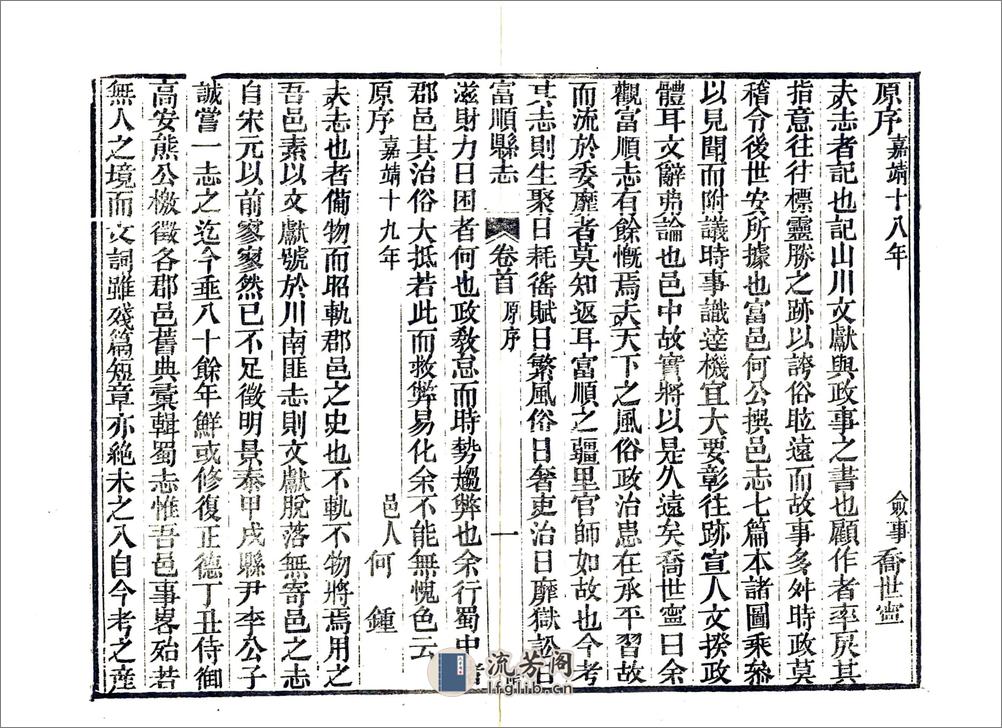 原序 嘉靖十八年 僉事 喬世寧
夫志者記也記山川文獻與政事之書也顧作者率戾其
指意往往標靈勝之跡以誇俗眩遠而故事多舛時政莫
稽令後世安所據也富邑何公撰邑志七篇本諸圖乘叅
以見聞而附議時事識達機宜大要彰往跡宣人文揆政
體耳文辭弗論也邑中故實將以是久遠矣喬世寧曰余
觀富順志有餘慨焉夫天下之風俗政治患在承平習故
而流於委靡者莫知返耳富順之疆里官師如故也今考
其志則生聚日耗徭賦日繁風俗日奢吏治日靡獄訟日
富順縣志 卷首 原序 一
滋財力日困者何也政敎怠而時勢趨弊也余行蜀中
郡邑其治俗大抵若此而救弊易化余不能無愧色云
原序 嘉靖十九年 邑人 何鍾
夫志也者備物而昭軌郡邑之史也不軌不物將焉用之
吾邑素以文獻號於川南匪志則文獻脫落無寄邑之志
自宋元以前寥寥然已不足徵明景泰甲戌縣尹李公子
誠嘗一志之迄今垂八十餘年鮮或修復正德丁丑侍御
高安熊公檄徵各郡邑舊典彙輯蜀志惟吾邑事畧殆若
無人之境而文詞雖殘篇短章亦絕未之入自今考之產
流芳阁
lfglib.cn